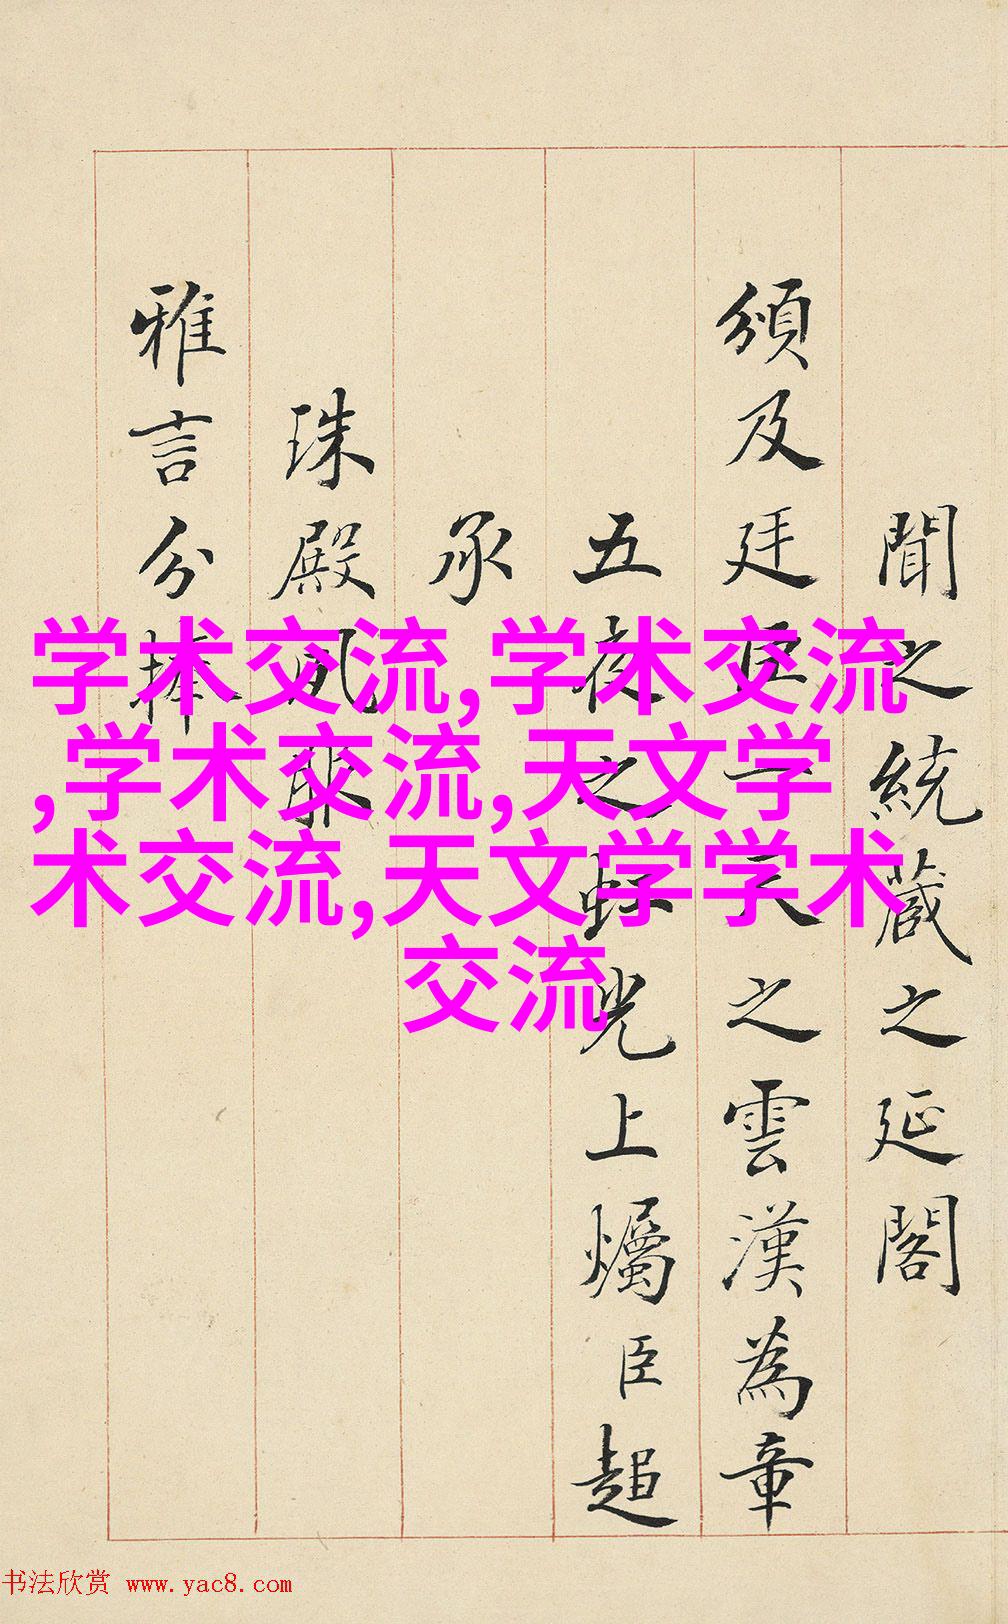 聞之統藏之延閣
頒及廷臣一天之雲漢為章
五夜之虹光上燭臣超
承
珠殿夙耽
雅言分捧
学术交流,学术交流
,学术交流,天文学
术交流,天文学学术
交流
书法欣赏 www.yac8.com